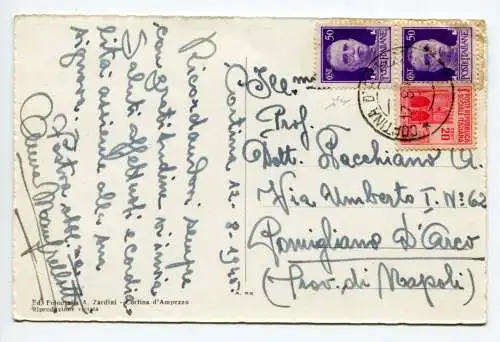 Cortina 12-8-1945.
Ricordandovi sempre
con gratitudine vi invio
saluti affettuosi e cordia
lità assieme alla sua
signora. Vostra aff.ma
Anna
Ill.mo
Prof.
Dott. Pacchiano A.
Via Umberto I. N° 62
Pomigliano D'Arco
(Prov. di Napoli)
Ed. Fotografia A. Zardini - Cortina d'Ampezzo
Riproduzione vietata
50
POSTE ITALIANE
50
POSTE ITALIANE
20
CORTINA D'